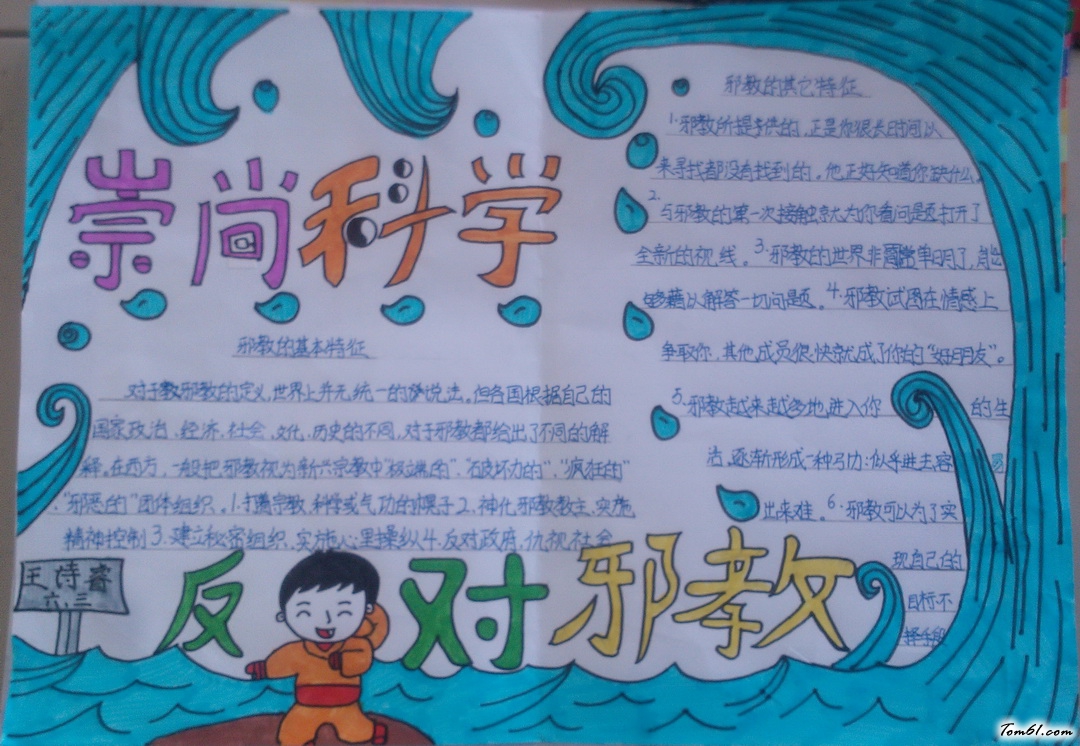 崇尚科学
邪教的基本特征
对于教邪教的定义,世界上并无统一的说法。但各国根据自己的
国家政治、经济、社会、文化、历史的不同,对于邪教都给出了不同的解
释。在西方,一般把邪教视为新兴宗教中"极端的"、"破坏力的"、"疯狂的"
"邪恶的"团体组织。1.打着宗教、科学或气功的幌子2、神化邪教教主、实施
精神控制3、建立秘密组织、实施心里操纵4、反对政府、仇视社会
王诗睿
六、三
反对邪教
邪教的其它特征
1.邪教所提供的,正是你很长时间以
来寻找都没有找到的。他正好知道你缺什么。
2.与邪教的第一次接触就为你看问题打开了
全新的视线。3.邪教的世界非常简单明了,能
够藉以解答一切问题。4.邪教试图在情感上
争取你,其他成员很快就成了你的"好朋友"。
5.邪教越来越多地进入你的生
活,逐渐形成一种引力:似乎进去容易
出来难。6.邪教可以为了实
现自己的
目标不
择手段
Tom61.com